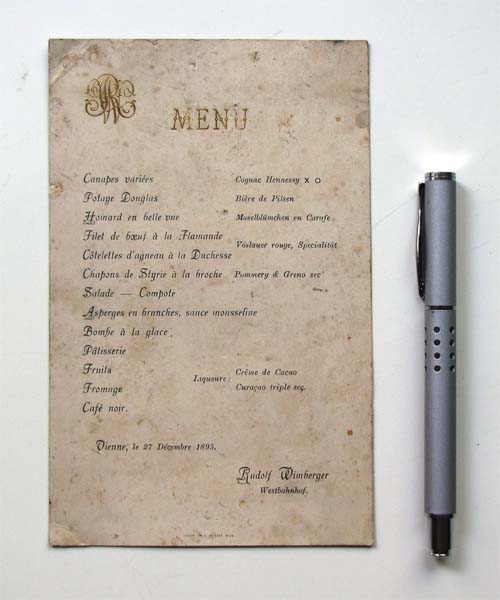 MENU
Canapes variées Cognac Hennessy X O
Potage Douglas Bière de Pilsen
Homard en belle vue Moselblümchen en Carafe
Filet de bœuf à la Flamande
Vöslauer rouge, Specialität
Côtelettes d'agneau à la Duchesse
Chapons de Styrie à la broche Pommery & Greno sec
Salade — Compote
Asperges en branches, sauce mousseline
Bombe à la glace
Pâtisserie
Fruits Crême de Cacao
Liqueurs:
Fromage Curaçao triple sec.
Café noir.
Vienne, le 27 Décembre 1895.
Rudolf Wimberger
Westbahnhof.